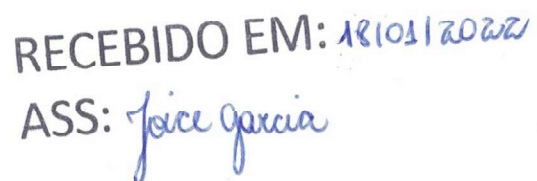 RECEBIDO EM: 18/01/2022
ASS: Joice Garcia